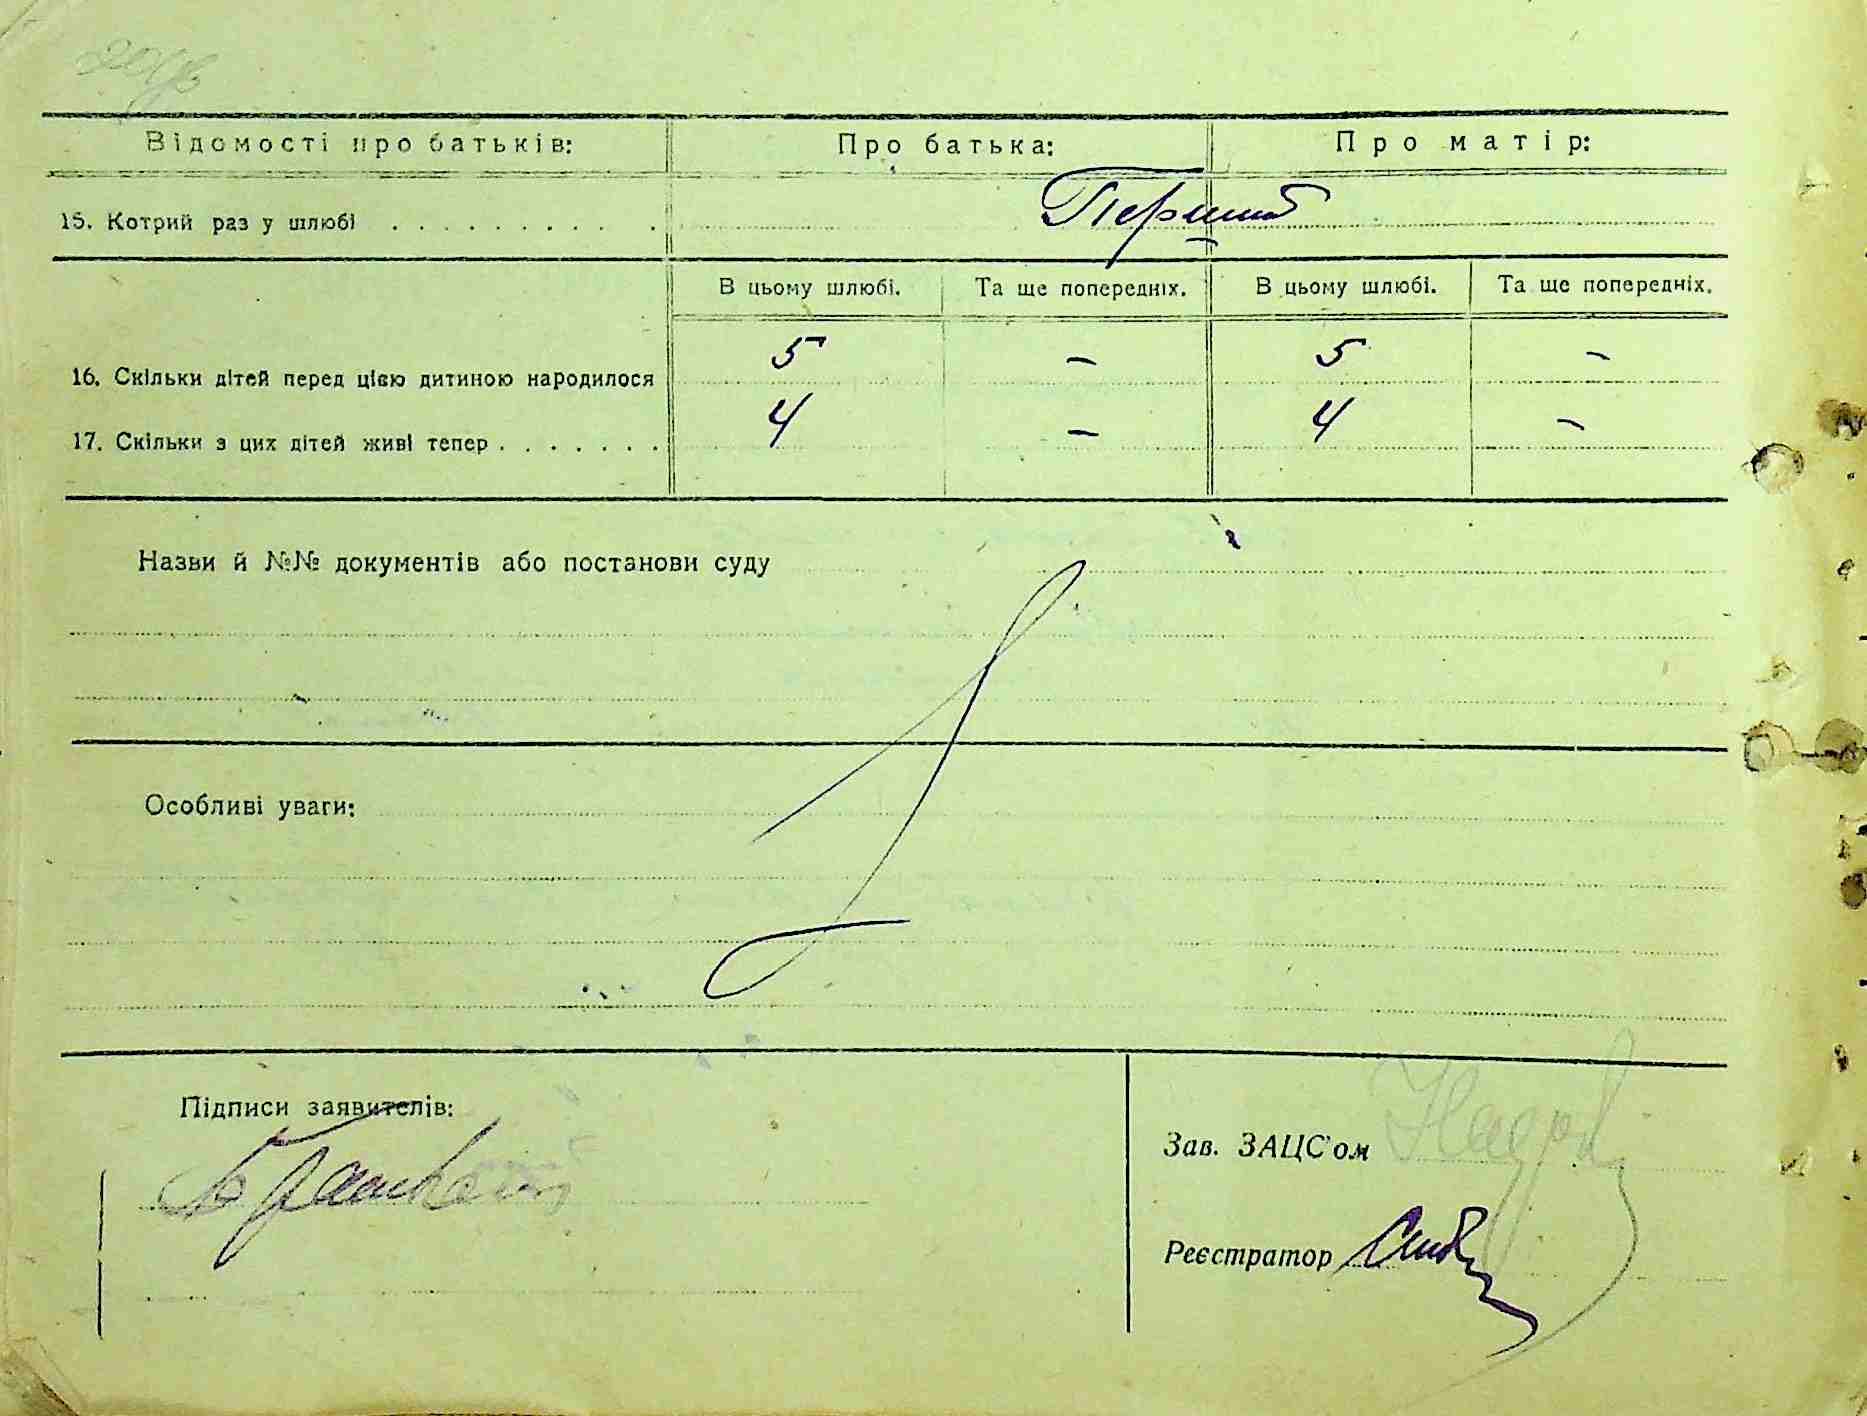 Відомості про батьків: Про батька: Про матір:
15. Котрий раз у шлюбі . . . . . . . . . . Перший
В цьому шлюбі. Та ще попередніх. В цьому шлюбі. Та ще попередніх.
16. Скільки дітей перед цією дитиною народилося 5 – 5 –
17. Скільки з цих дітей живі тепер . . . . . . . 4 – 4 –
Назви й №№ документів або постанови суду
Особливі уваги:
Підписи заявителів:
Зав. ЗАЦС'ом
Реєстратор